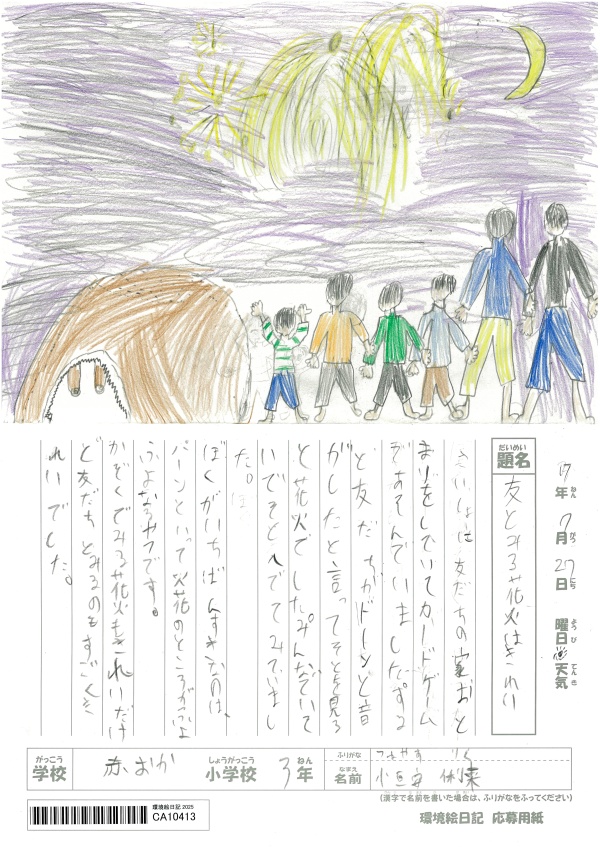 17年7月27日 曜日 天気
題名 友とみる花火はきれい
さいしょは友だちの家おと
まりをしていてカードゲーム
ぞあそんでいました。する
と友だちがドーンと音
がしたと言ってそとを見る
と花火でした。みんなでいて
いでそとへでてみていまし
た。
ぼくがいちばんすきなのは、
パーンといって火花のところがふよ
ふよなるやつです。
かぞくでみる花火もきれいだけ
ど友だちとみるのもすごくき
れいでした。
がっこう 学校 赤おか しょうがっこう 小学校 3 ねん 年
ふりがな
なまえ 名前
(漢字で名前を書いた場合は、ふりがなをふってください)
環境絵日記 2025
CA10413
環境絵日記 応募用紙